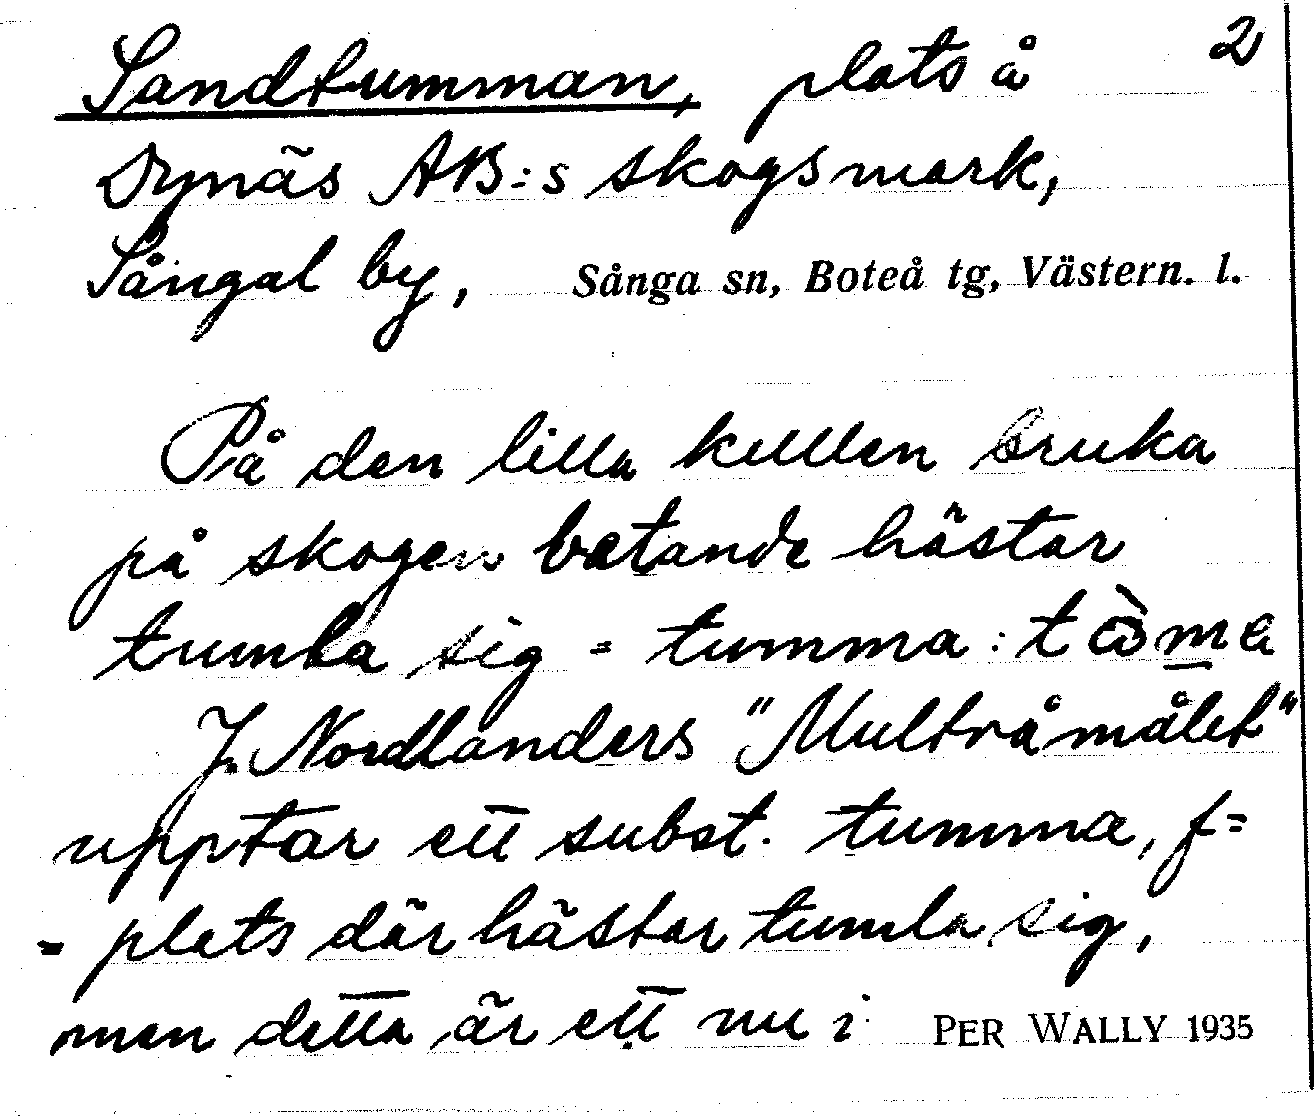 Sandtumman, plats å 2
Dynäs AB:s skogsmark,
Sångal by, Sånga sn, Boteå tg, Västern. l.
På den lilla kullen bruka
på skogen betande hästar
tumla sig = tumma: tɷ̀m̲a
J. Nordlanders "Multråmålet"
upptar ett subst. tumma, f =
= plats där hästar tumla sig,
men detta är ett nu i PER WALLY 1935